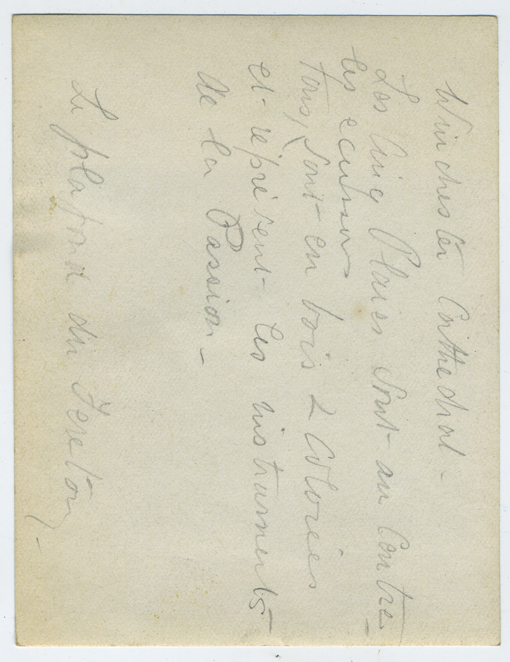 Winchester Cathedral -
Les Cinq Plaies sont au Centre -
les ecussons
tous, sont en bois & Colorées
et représent- les instruments
de la Passion -
Le plafond du Feretory -